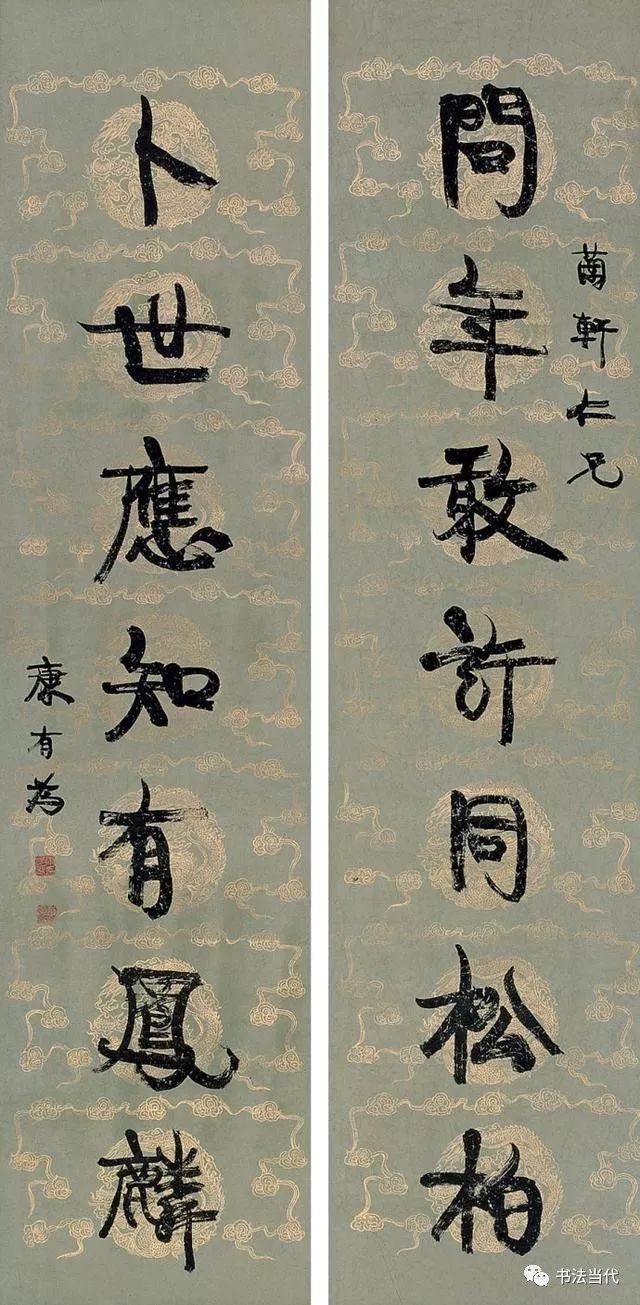 問年敢許同松柏
軒仁兄
卜世應知有鳳麟
康有為
书法当代